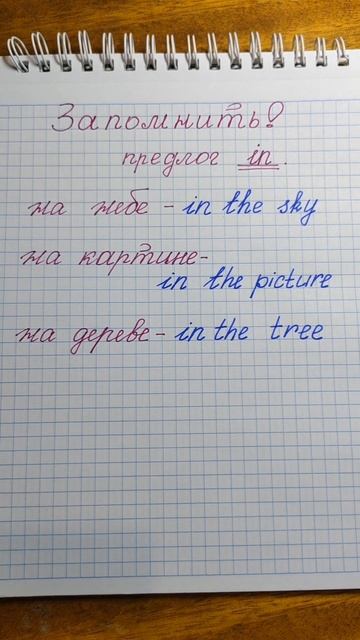 Запомнить!
предлог in.
на небе - in the sky
на картине-
in the picture
на дереве - in the tree